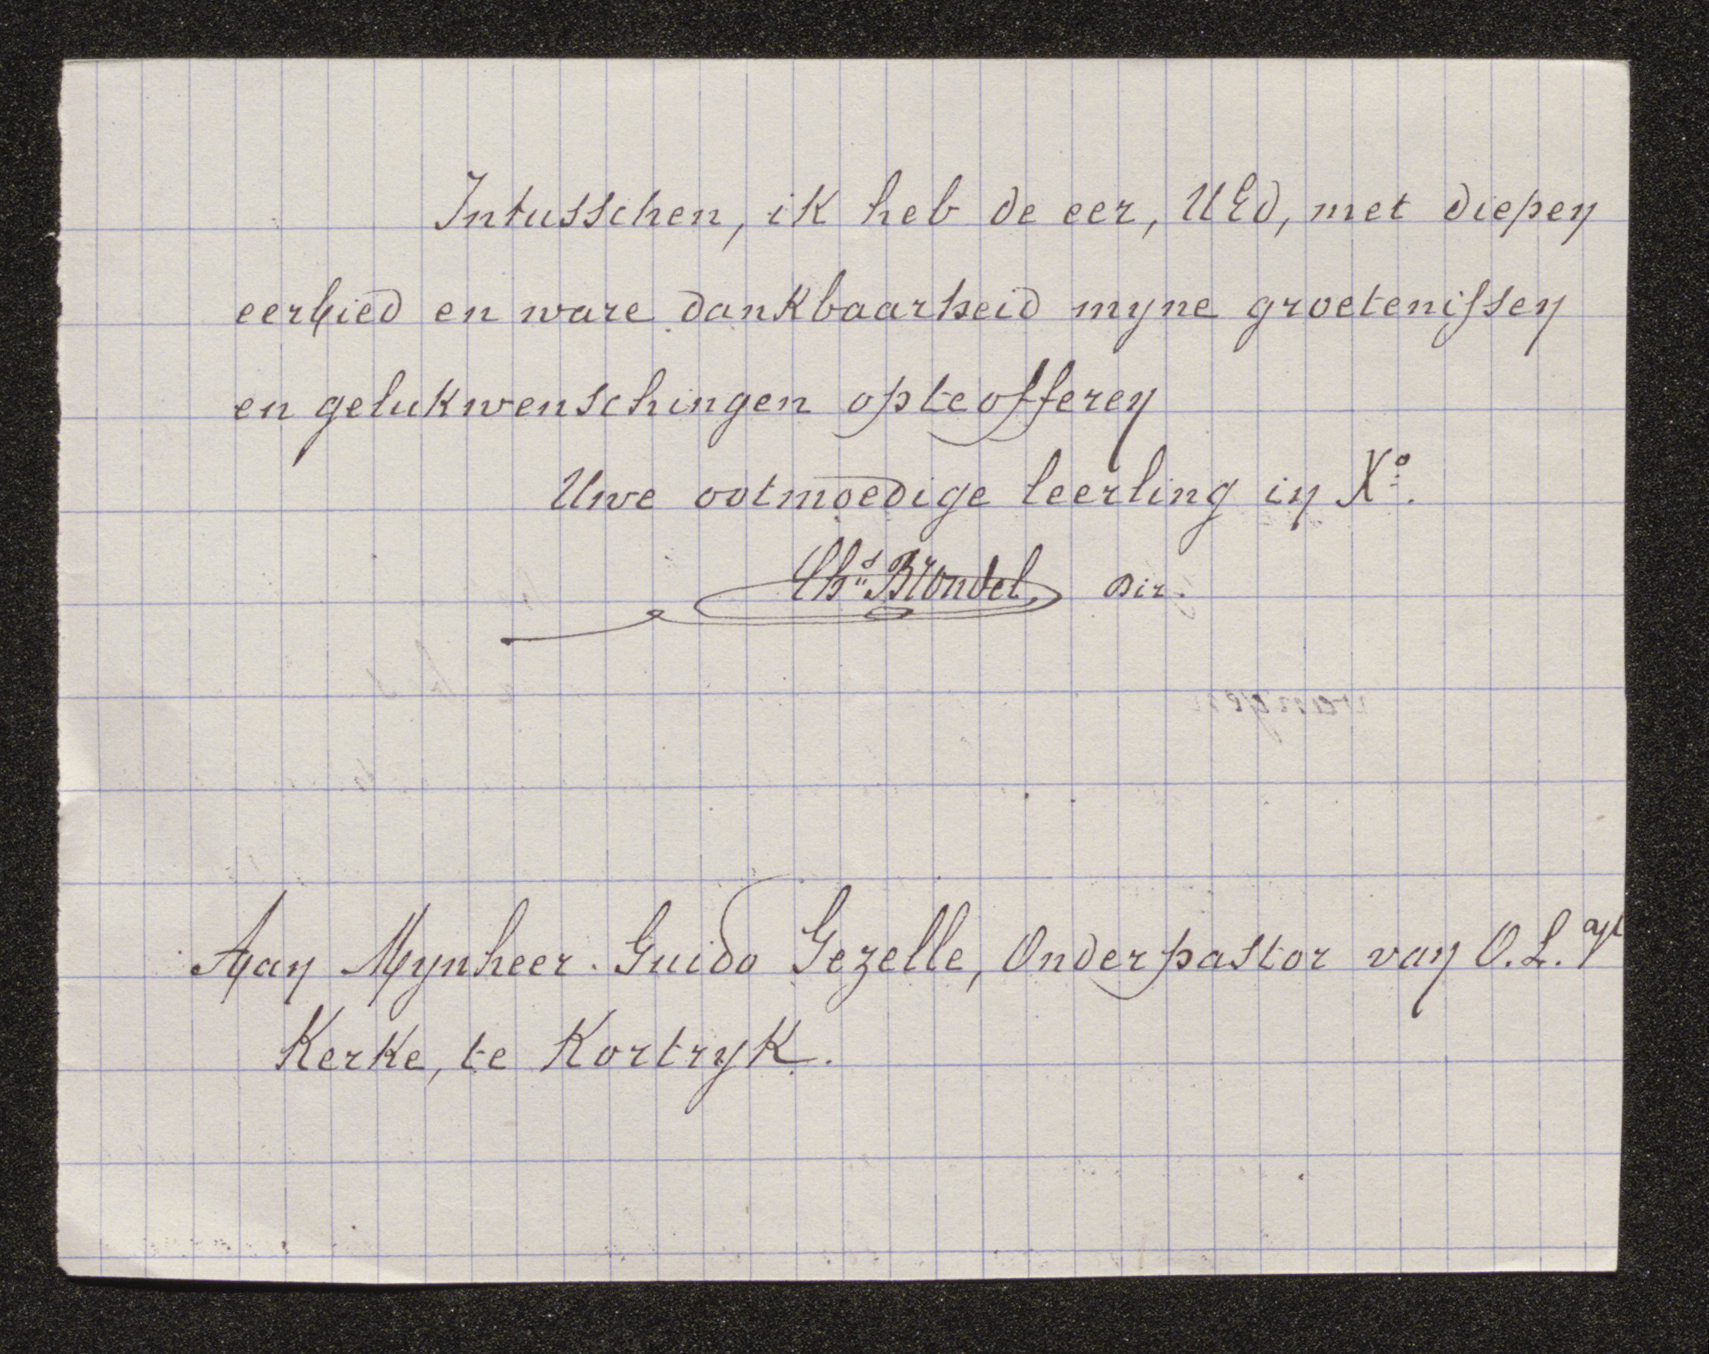 Intusschen, ik heb de eer, UEd, met diepen
eerbied en ware dankbaarheid myne groetenissen
en gelukwenschingen opteofferen
Uwe ootmoedige leerling in X°.
Chs Blondel, Dir.
Aan Mynheer Guido Gezelle, Onderpastor van O.L.
Kerke, te Kortryk.